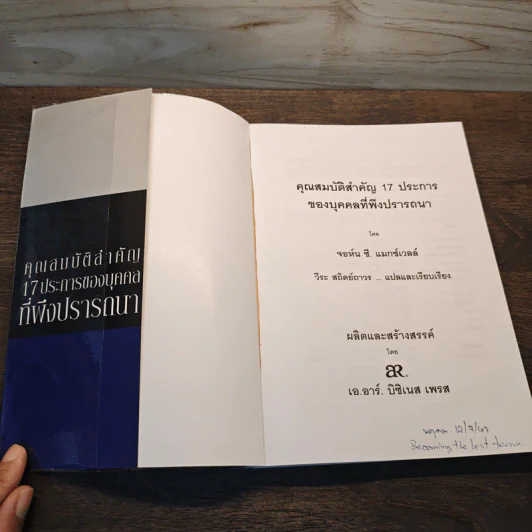 คุณสมบัติสำคัญ
17 ประการของบุคคล
ที่พึงปรารถนา
คุณสมบัติสำคัญ 17 ประการ
ของบุคคลที่พึงปรารถนา
โดย
จอห์น ซี. แมกซ์เวลล์
วีระ สถิตย์ถาวร ... แปลและเรียบเรียง
ผลิตและสร้างสรรค์
โดย
AR
เอ.อาร์. บิซิเนส เพรส
12/7/47
Becoming the best team.